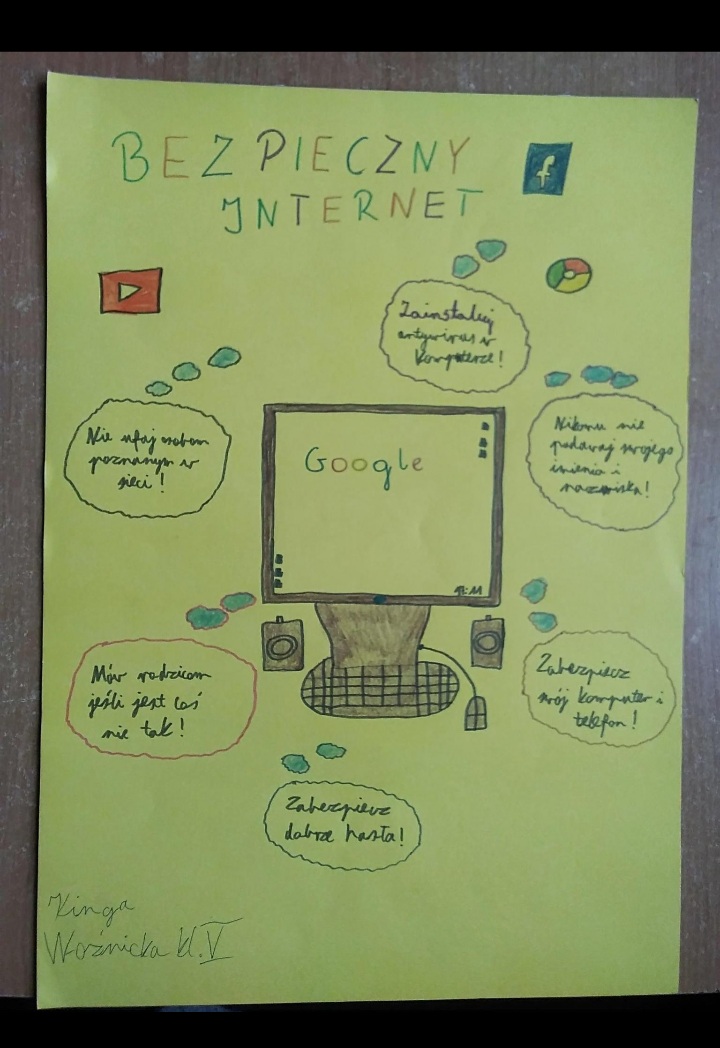 BEZPIECZNY
INTERNET
f
Zainstaluj
antywirus w
komputerze!
Nie ufaj osobom
poznanym w
sieci!
Nikomu nie
podawaj swojego
imienia i
nazwiska!
Google
Mów rodzicom
jeśli jest coś
nie tak!
Zabezpiecz
swój komputer i
telefon!
Zabezpiecz
dobrze hasła!
Kinga
Woźnicka kl. V